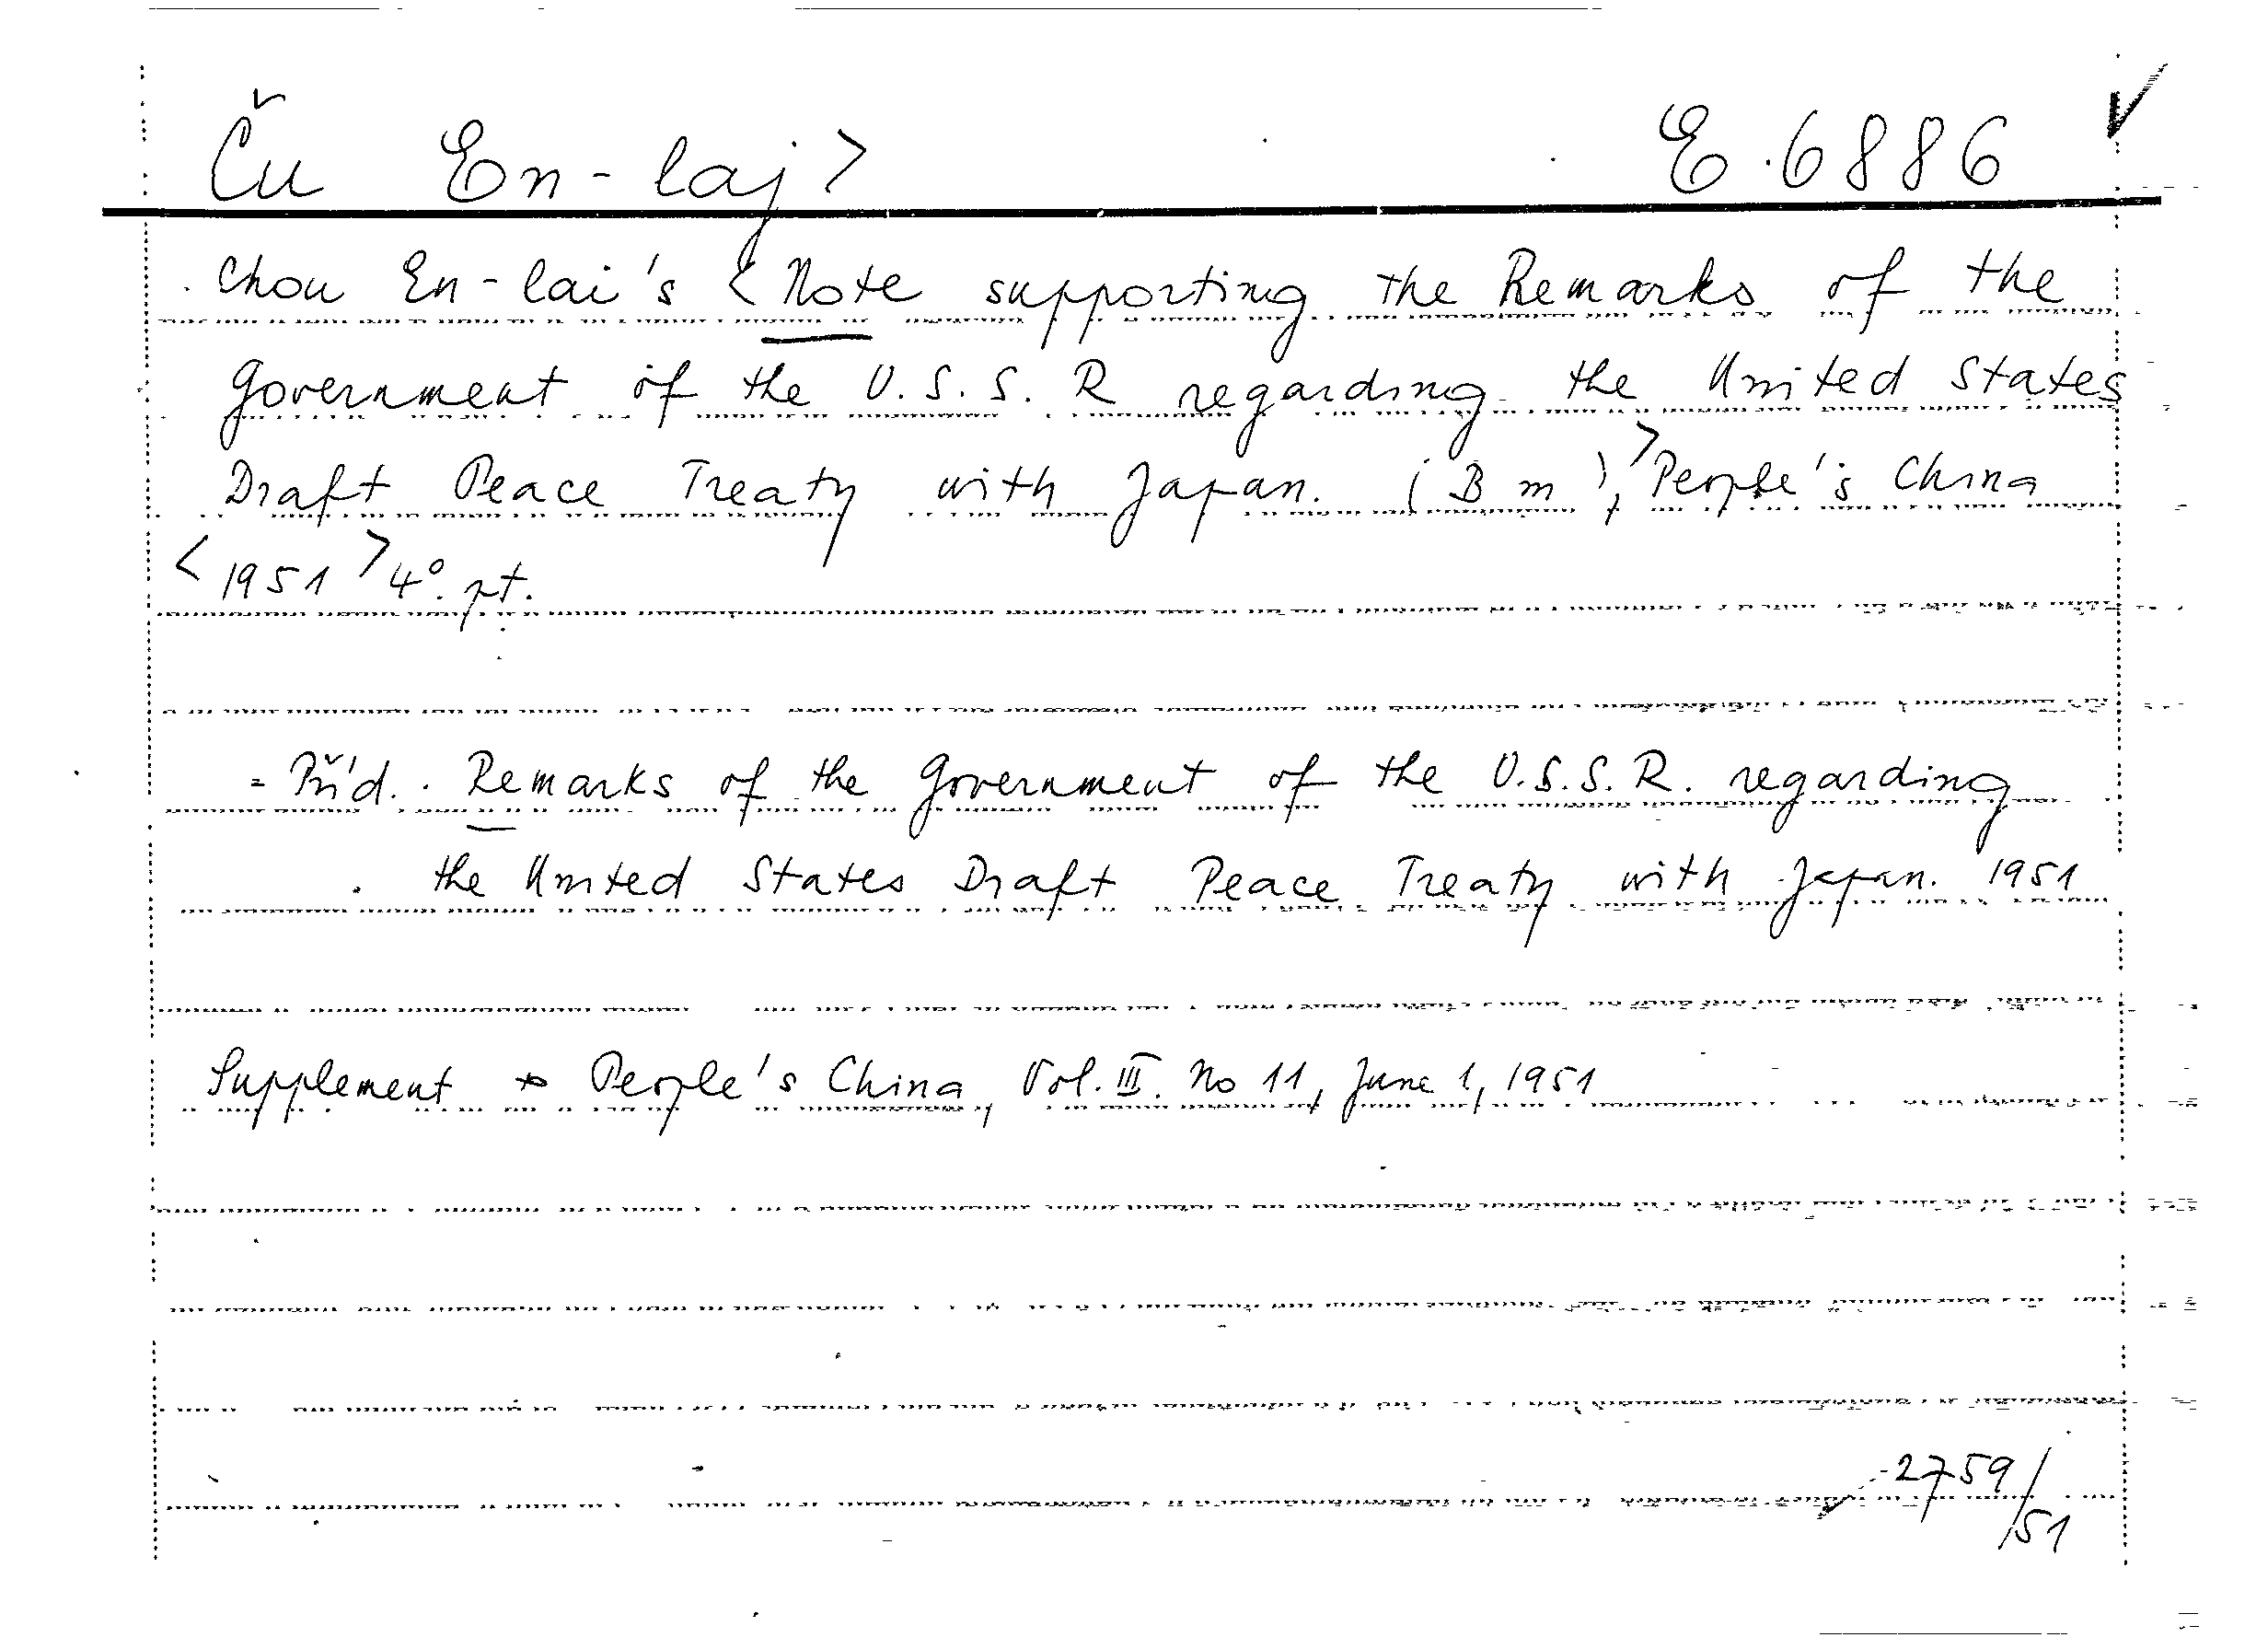 Ču En-laj> E 6886
Chou En-lai's <Note supporting the Remarks of the
Government of the U.S.S.R regarding the United States
Draft Peace Treaty with Japan. (B m),> People's China
<1951> 4°. pt.
= Příd. Remarks of the Government of the U.S.S.R. regarding
the United States Draft Peace Treaty with Japan. 1951
Supplement to People's China, Vol. III. No 11, June 1, 1951
2759/
51